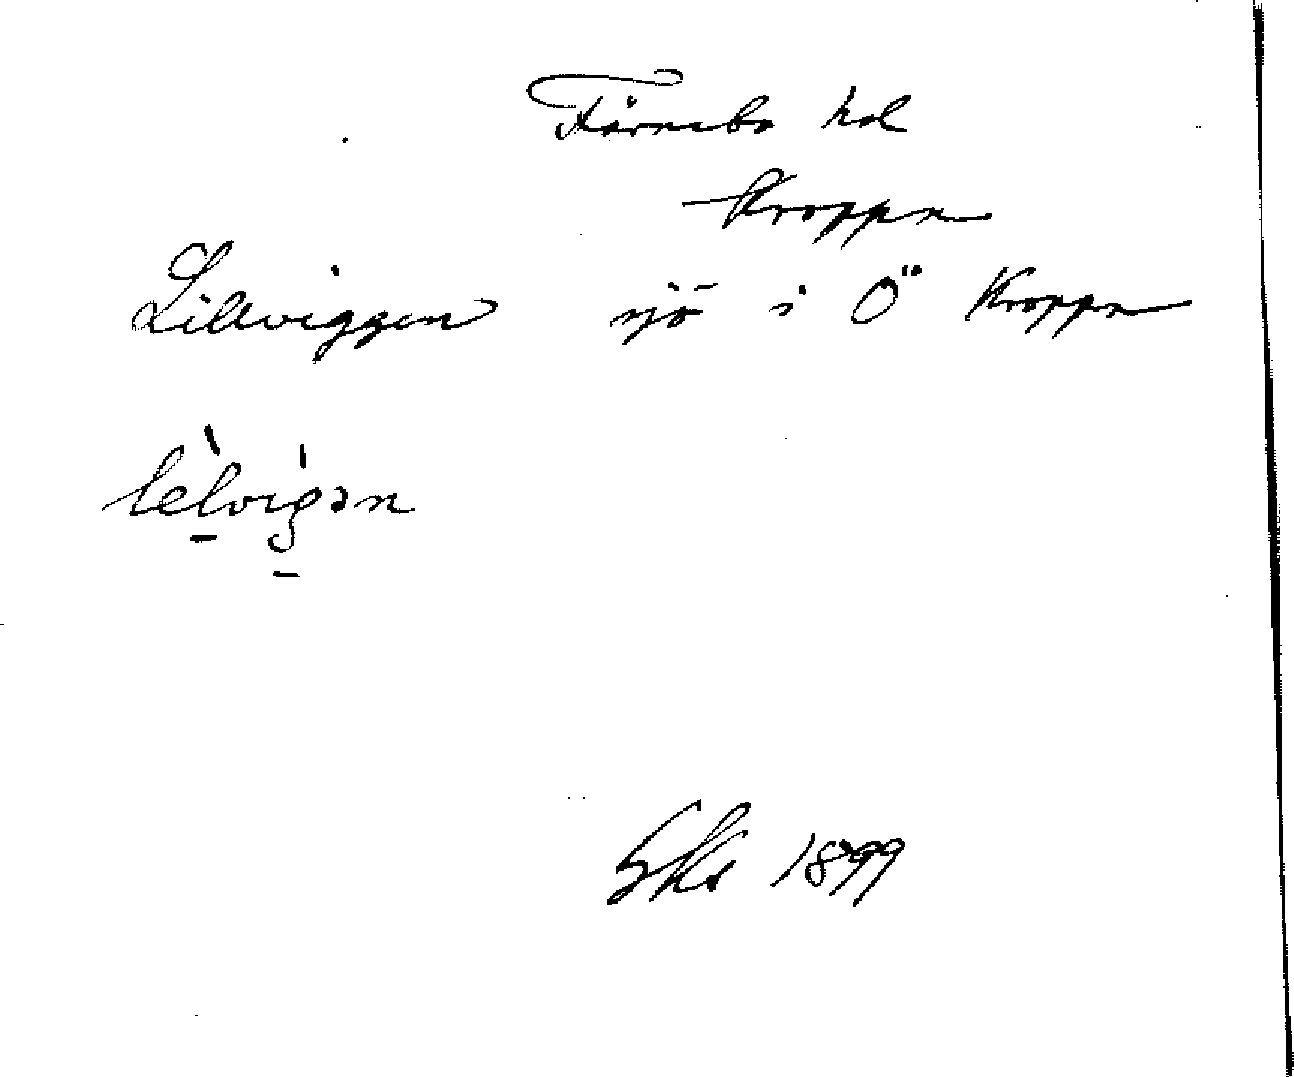 Färnebo hd
Kroppa
Lillviggen sjö i Ö Kroppa
lèlvigən
Sks 1899